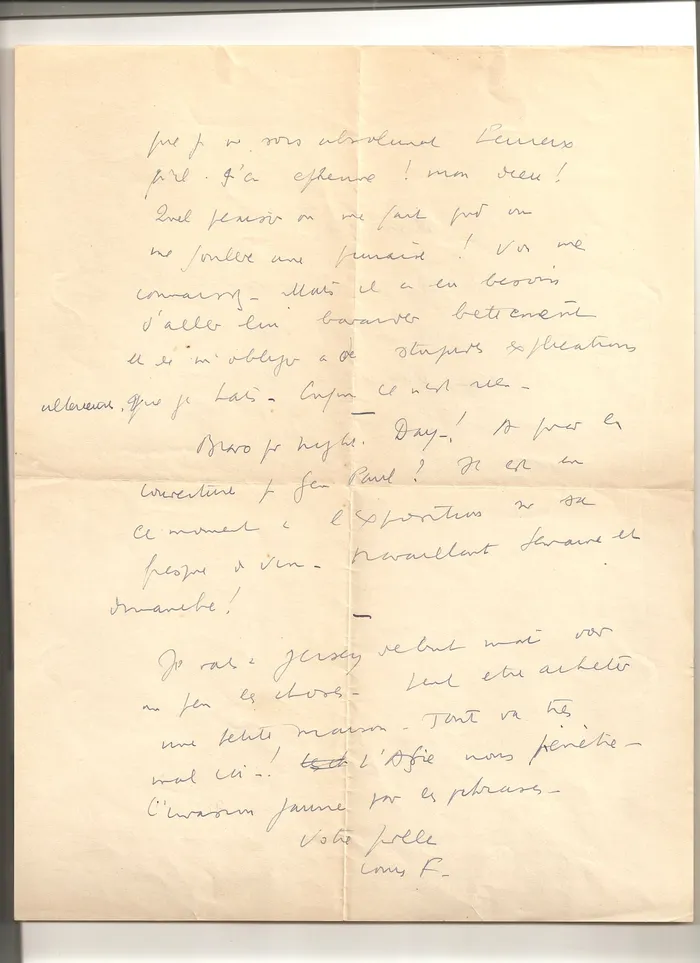 que je ne sois absolument
! mon dieu !
Quel plaisir on me fait qd on
me soulève une punaise ! Vos me
connaissez - Mais il a eu besoin
d'aller lui bavarder bêtement
et m'obliger à de stupides explications
que je hais - Enfin ce n'est rien -
Bravo pr Night. Day - !
couverture pr Gen Paul ? Il est en
ce moment à l'exposition sr sa
- travaillant semaine et
dimanche !
Je vais à Jersey début mai voir
un peu les choses - Peut etre acheter
une petite maison - Tout va très
mal ici - ! L'Asie nous pénètre -
L'invasion jaune par les phrases -
Votre
Louis F -